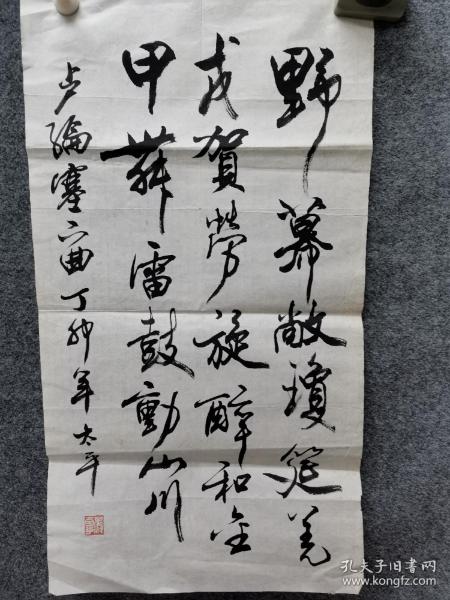 野幕敞瓊筵羌
戎賀勞旋醉和金
甲舞雷鼓動山川
卢綸塞下曲丁卯年太平
孔夫子旧书网
www.kongfz.com